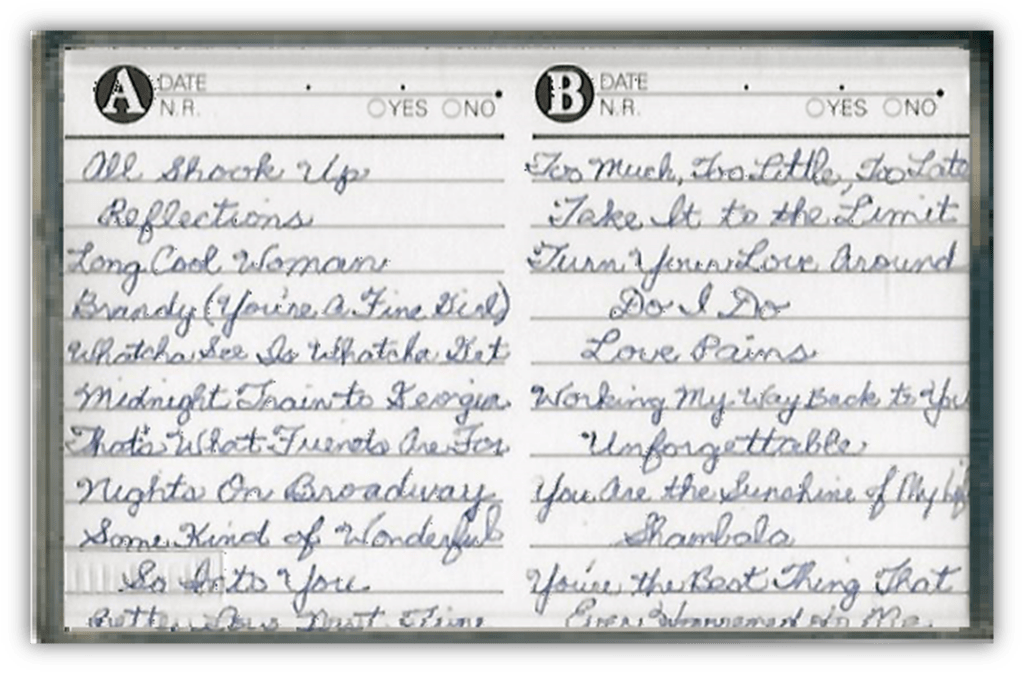 A DATE
N.R. YES NO
All Shook Up
Reflections
Long Cool Woman
Brandy (You're A Fine Girl)
Whatcha See Is Whatcha Get
Midnight Train to Georgia
That's What Friends Are For
Nights On Broadway
Some Kind of Wonderful
So Into You
B DATE
N.R. YES NO
Too Much, Too Little, Too Late
Take It to the Limit
Turn Your Love Around
Do I Do
Love Pains
Working My Way Back to You
Unforgettable
You Are the Sunshine of My Life
Shambala
You're the Best Thing That
Ever Happened to Me